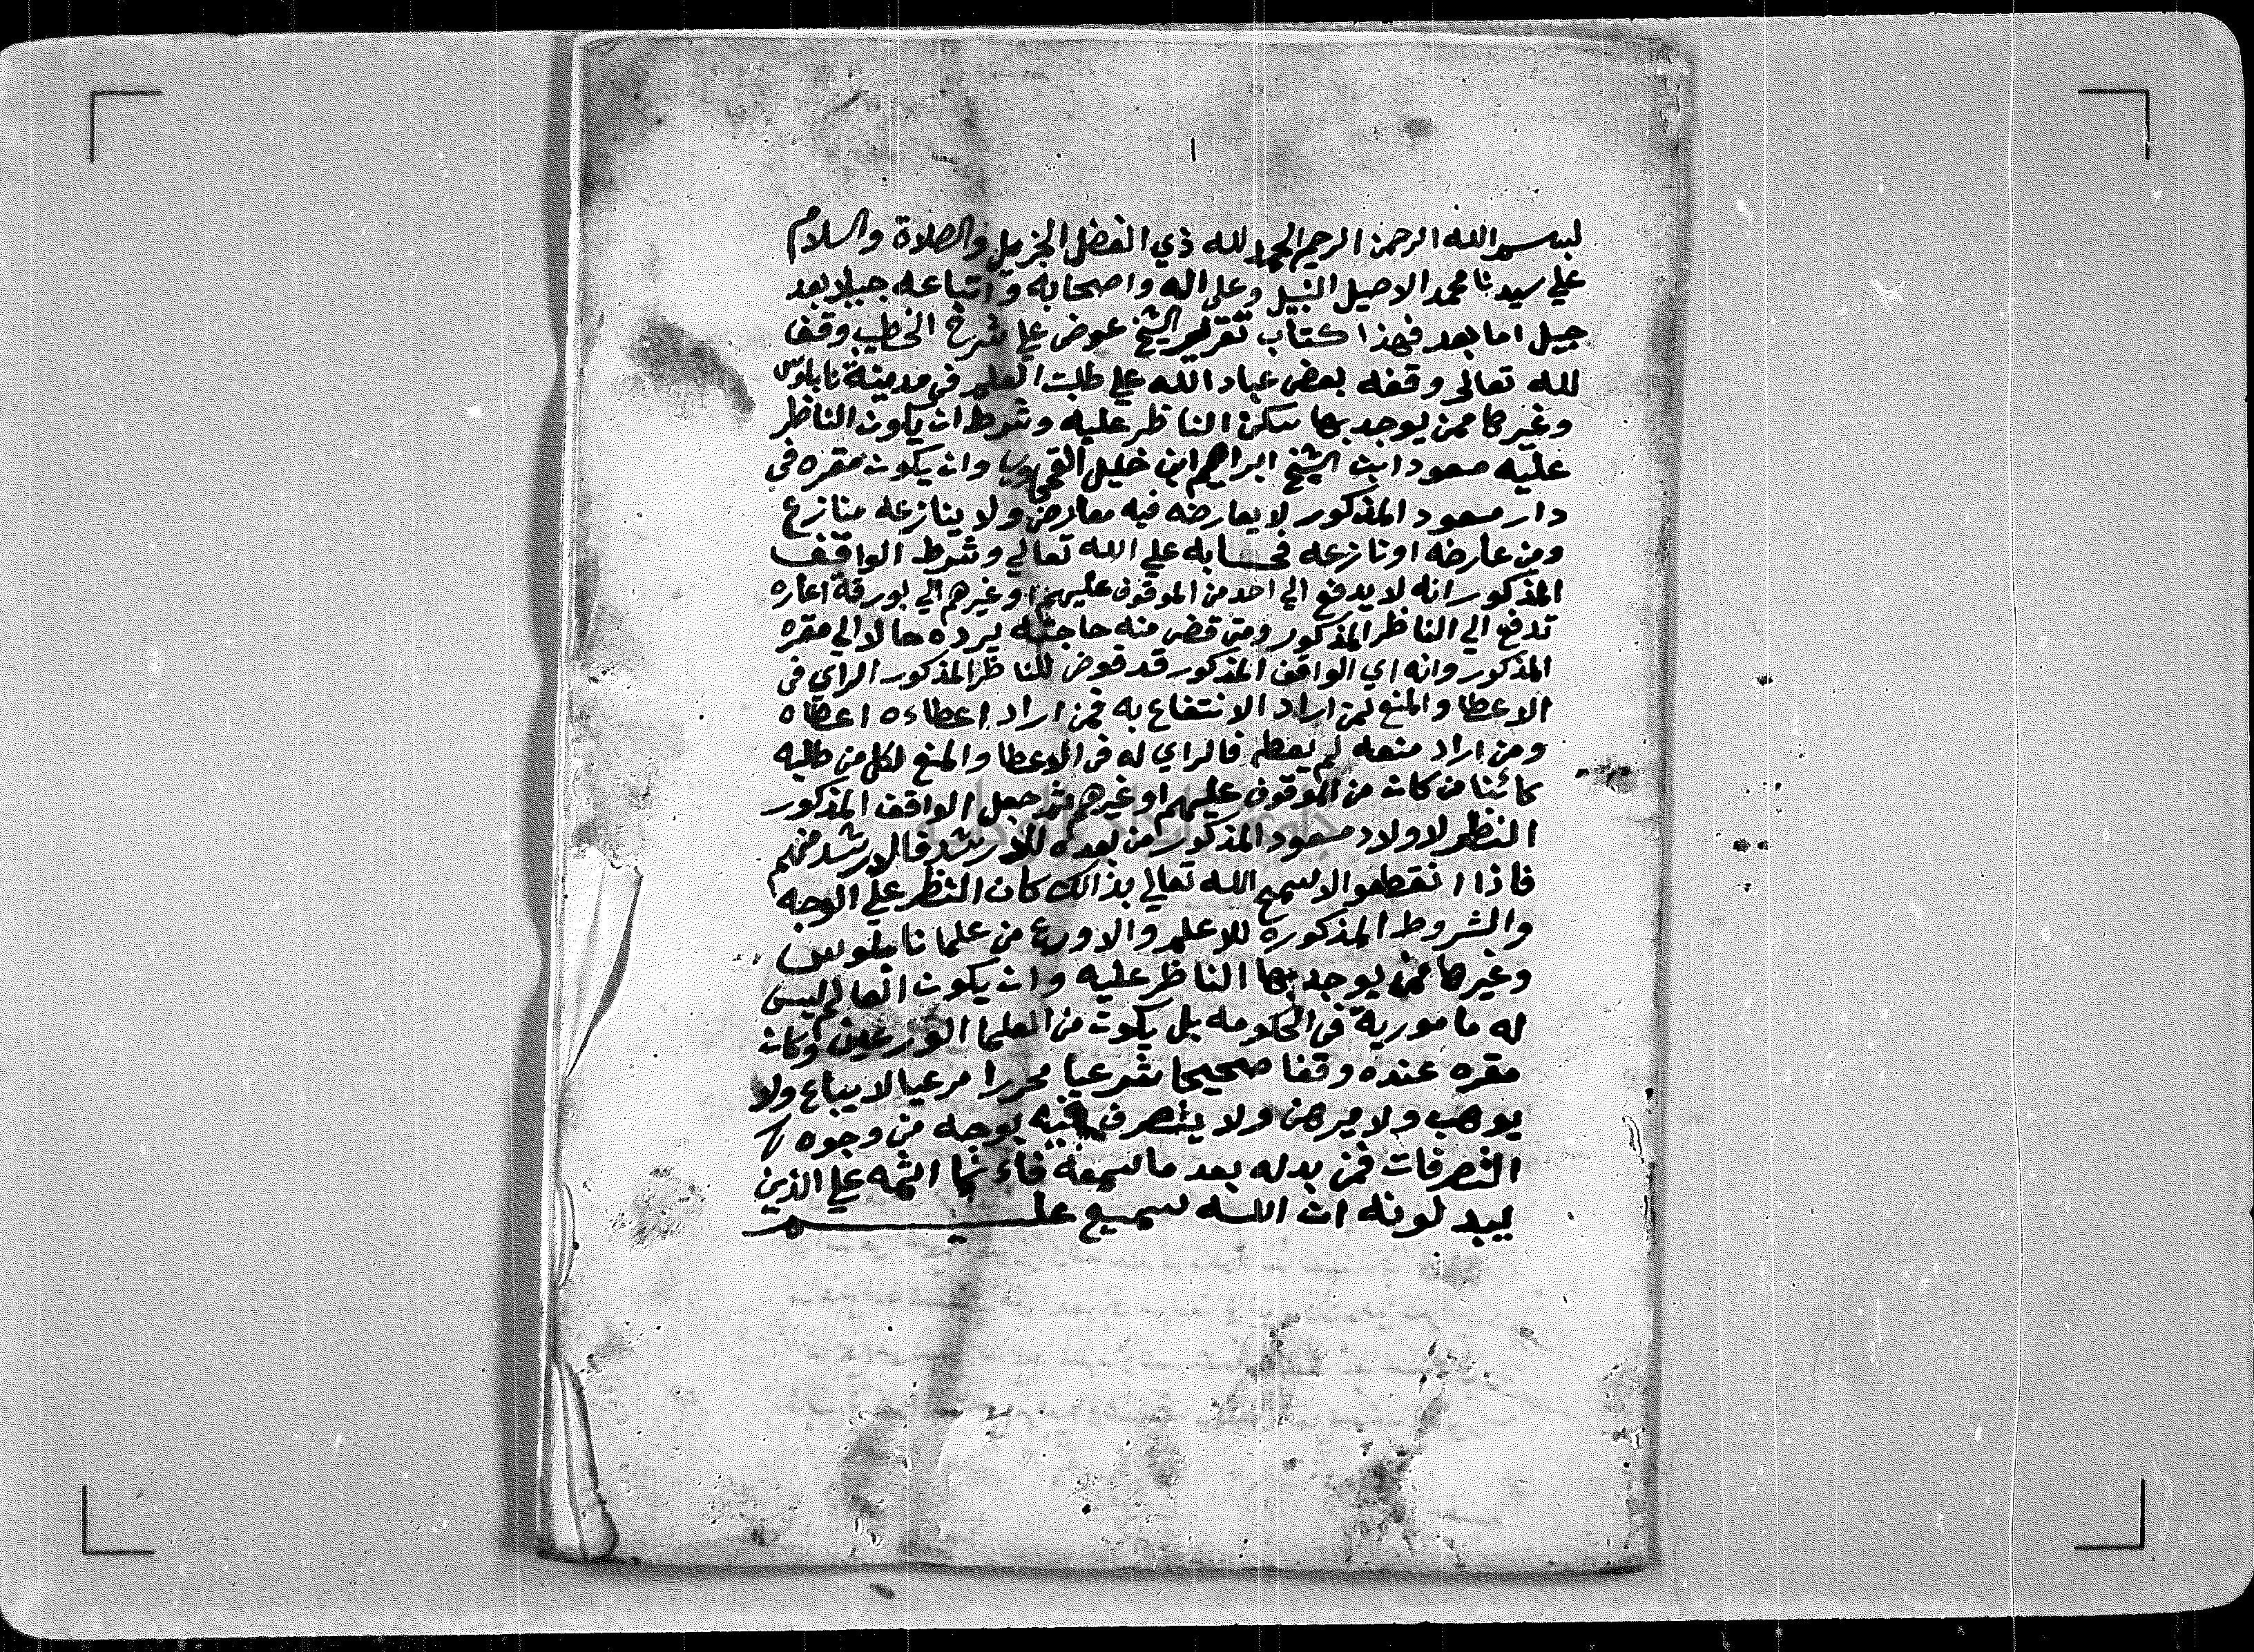 ١
بسم الله الرحمن الرحيم الحمد لله ذي الفضل الجزيل والصلاة والسلام
علي سيدنا محمد الاصيل النبيل وعلى اله واصحابه واتباعه جيلا بعد
جيل اما بعد فهذا كتاب تقرير الشيخ عوض علي شرح الخطيب وقف
لله تعالى وقفه بعض عباد الله علي طلبت العلم في مدينة نابلوس
وغيرها ممن يوجد بها سكن الناظر عليه وشرط ان يكون الناظر
عليه مسعود ابن الشيخ ابراهيم ابن خليل وان يكون مقره في
دار مسعود المذكور لا يعارضه فيه معارض ولا ينازعه منازع
ومن عارضه او نازعه فحسابه علي الله تعالي وشرط الواقف
المذكور انه لا يدفع الي احد من الموقوف عليهم او غيرهم الي بورقة اعاره
تدفع الي الناظر المذكور ومتى قضى منه حاجته يرده حالا الي مقره
المذكور وانه اي الواقف المذكور قد فوض للناظر المذكور الراي في
الاعطا والمنع لمن اراد الانتفاع به فمن اراد اعطاءه اعطاه
ومن اراد منعه لم يعطه فالراي له في الاعطا والمنع لكل من طلبه
كائنا من كان من الموقوف عليهم او غيرهم ثم جعل الواقف المذكور
النظر لاولاد مسعود المذكور من بعده للارشد فالارشد منهم
فاذا انقطعوا لا سمح الله تعالي بذالك كان النظر علي الوجه
والشروط المذكوره للاعلم والاورع من علما نابلوس
وغيرها ممن يوجد بها الناظر عليه وان يكون العالم ليس
له مامورية في الحكومه بل يكون من العلما الورعين وكان
مقره عنده وقفا صحيحا شرعيا محررا مرعيا لا يباع ولا
يوهب ولا يرهن ولا يتصرف فيه بوجه من وجوه
التصرفات فمن بدله بعد ما سمعه فاءنما اثمه علي الذين
يبدلونه ان الله سميع عليم